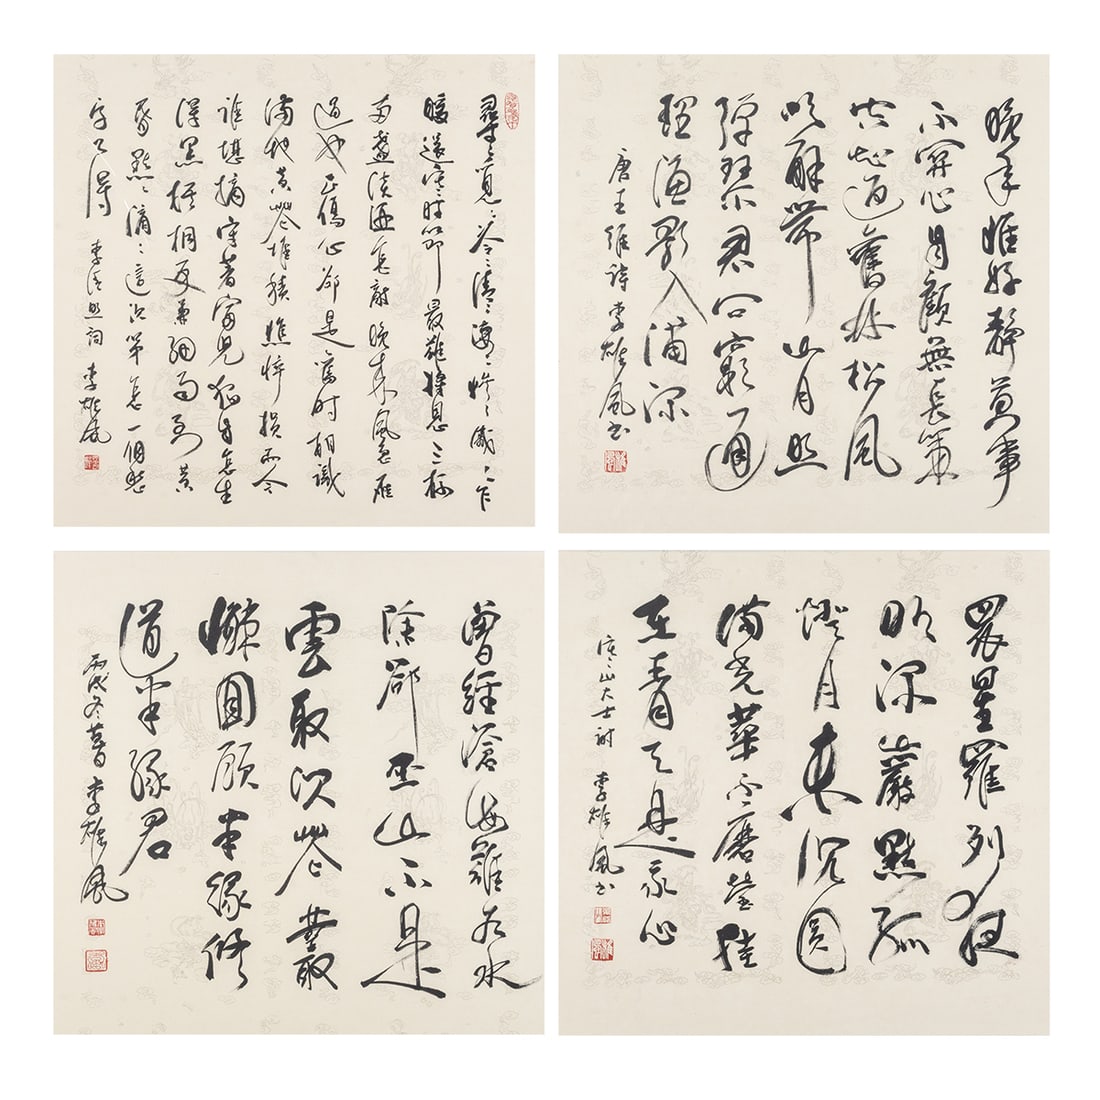 尋〻覓〻冷〻清〻淒〻慘〻戚〻乍
暖還寒〻時節最難將息三杯
兩盞淡酒怎敵晚來風急雁
過也正傷心卻是舊時相識
滿地黃花堆積憔悴損而今
誰堪摘守著窗兒獨自怎生
得黑梧桐更兼細雨到黃
昏點〻滴〻這次第怎一個愁
字了得
李清照詞 李雄風
晚年惟好靜萬事
不關心自顧無長策
空知返舊林松風
吹解帶山月照
彈琴君問窮通
理漁歌入浦深
唐王維詩李雄風書
曾經滄海難為水
除卻巫山不是
雲取次花叢
懶回顧半緣修
道半緣君
丙戌冬暮李雄風
眾星羅列夜
明深巖點孤
燈月未沉圓
滿光華不磨瑩掛
在青天是我心
寒山大士詩 李雄風書